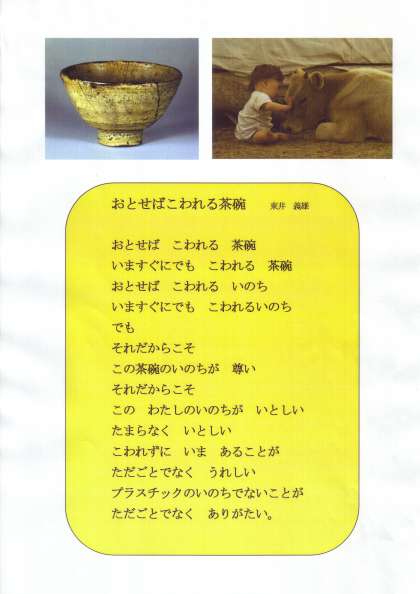 おとせばこわれる茶碗　東井　義雄
おとせば　こわれる　茶碗
いますぐにでも　こわれる　茶碗
おとせば　こわれる　いのち
いますぐにでも　こわれるいのち
でも
それだからこそ
この茶碗のいのちが　尊い
それだからこそ
この　わたしのいのちが　いとしい
たまらなく　いとしい
こわれずに　いま　あることが
ただごとでなく　うれしい
プラスチックのいのちでないことが
ただごとでなく　ありがたい。